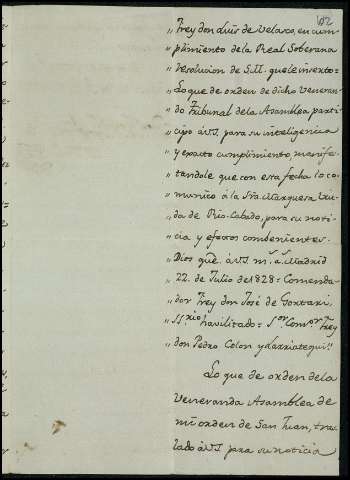 102
„ Frey don Luis de Velasco, en cum-
„ plimiento de la Real Soberana
„ resolucion de S.M. que le inserto=
„ Lo que de orden de dicho Veneran-
„ do Tribunal de la Asamblea parti-
„ cipo à V.S. para su inteligencia
„ y exacto cumplimiento, manifes-
„ tandole que con esta fecha lo co-
„ munico á la Sra. Marquesa Viu-
„ da de Rio-Cabado, para su noti-
„ cia y efectos combenientes.
„ Dios gue. à V.S. ms. as. Madrid
„ 22. de Julio de 1828= Comenda-
„ dor Frey don José de
„ SS.rio havilitado= Sor. Comor. Frey
„ don Pedro Colon y Larriategui"
Lo que de orden de la
Veneranda Asamblea de
mi orden de San Juan, tras-
lado à V.S. para su noticia